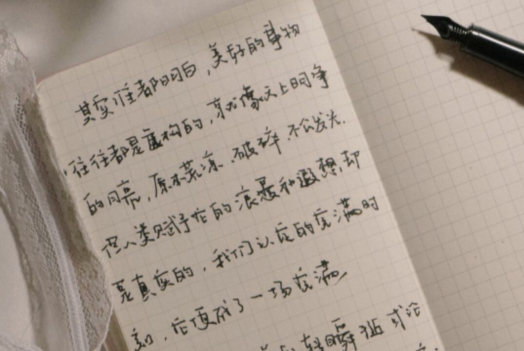 其实谁都明白，美好的事物
往往都是虚构的，就像天上的
的月亮，原本荒凉、破碎、不会发光。
但人类赋予它的浪漫和遐想，却
是真实的，我们认定的完满时
刻，它便成了一场完满
转瞬